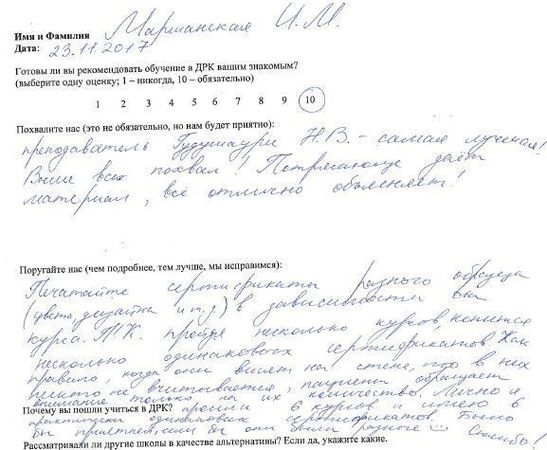 Имя и Фамилия Марианская И.М.
Дата: 23.11.2017
Готовы ли вы рекомендовать обучение в ДРК вашим знакомым?
(выберите одну оценку; 1 – никогда, 10 – обязательно)
1 2 3 4 5 6 7 8 9 10
Похвалите нас (это не обязательно, но нам будет приятно):
преподаватель Гудушаури Н.В. – самая лучшая!
Выше всех похвал! Потрясающе даёт
материал, всё отлично объясняет!
Поругайте нас (чем подробнее, тем лучше, мы исправимся):
Печатайте сертификаты разного образца
(цвета, дизайна и т.д.) в зависимости от
курса. Т.К. пройдя несколько курсов, копится
несколько одинаковых сертификатов. Как
правило, когда они висят на стене, то в них
никто не вчитывается, пациент обращает
внимание только на их количество. Лично я
Почему вы пошли учиться в ДРК? прошла 6 курсов и имею 6
практически одинаковых сертификатов. Было
бы приятнее, если бы они были разные Спасибо!
Рассматривали ли другие школы в качестве альтернативы? Если да, укажите какие.